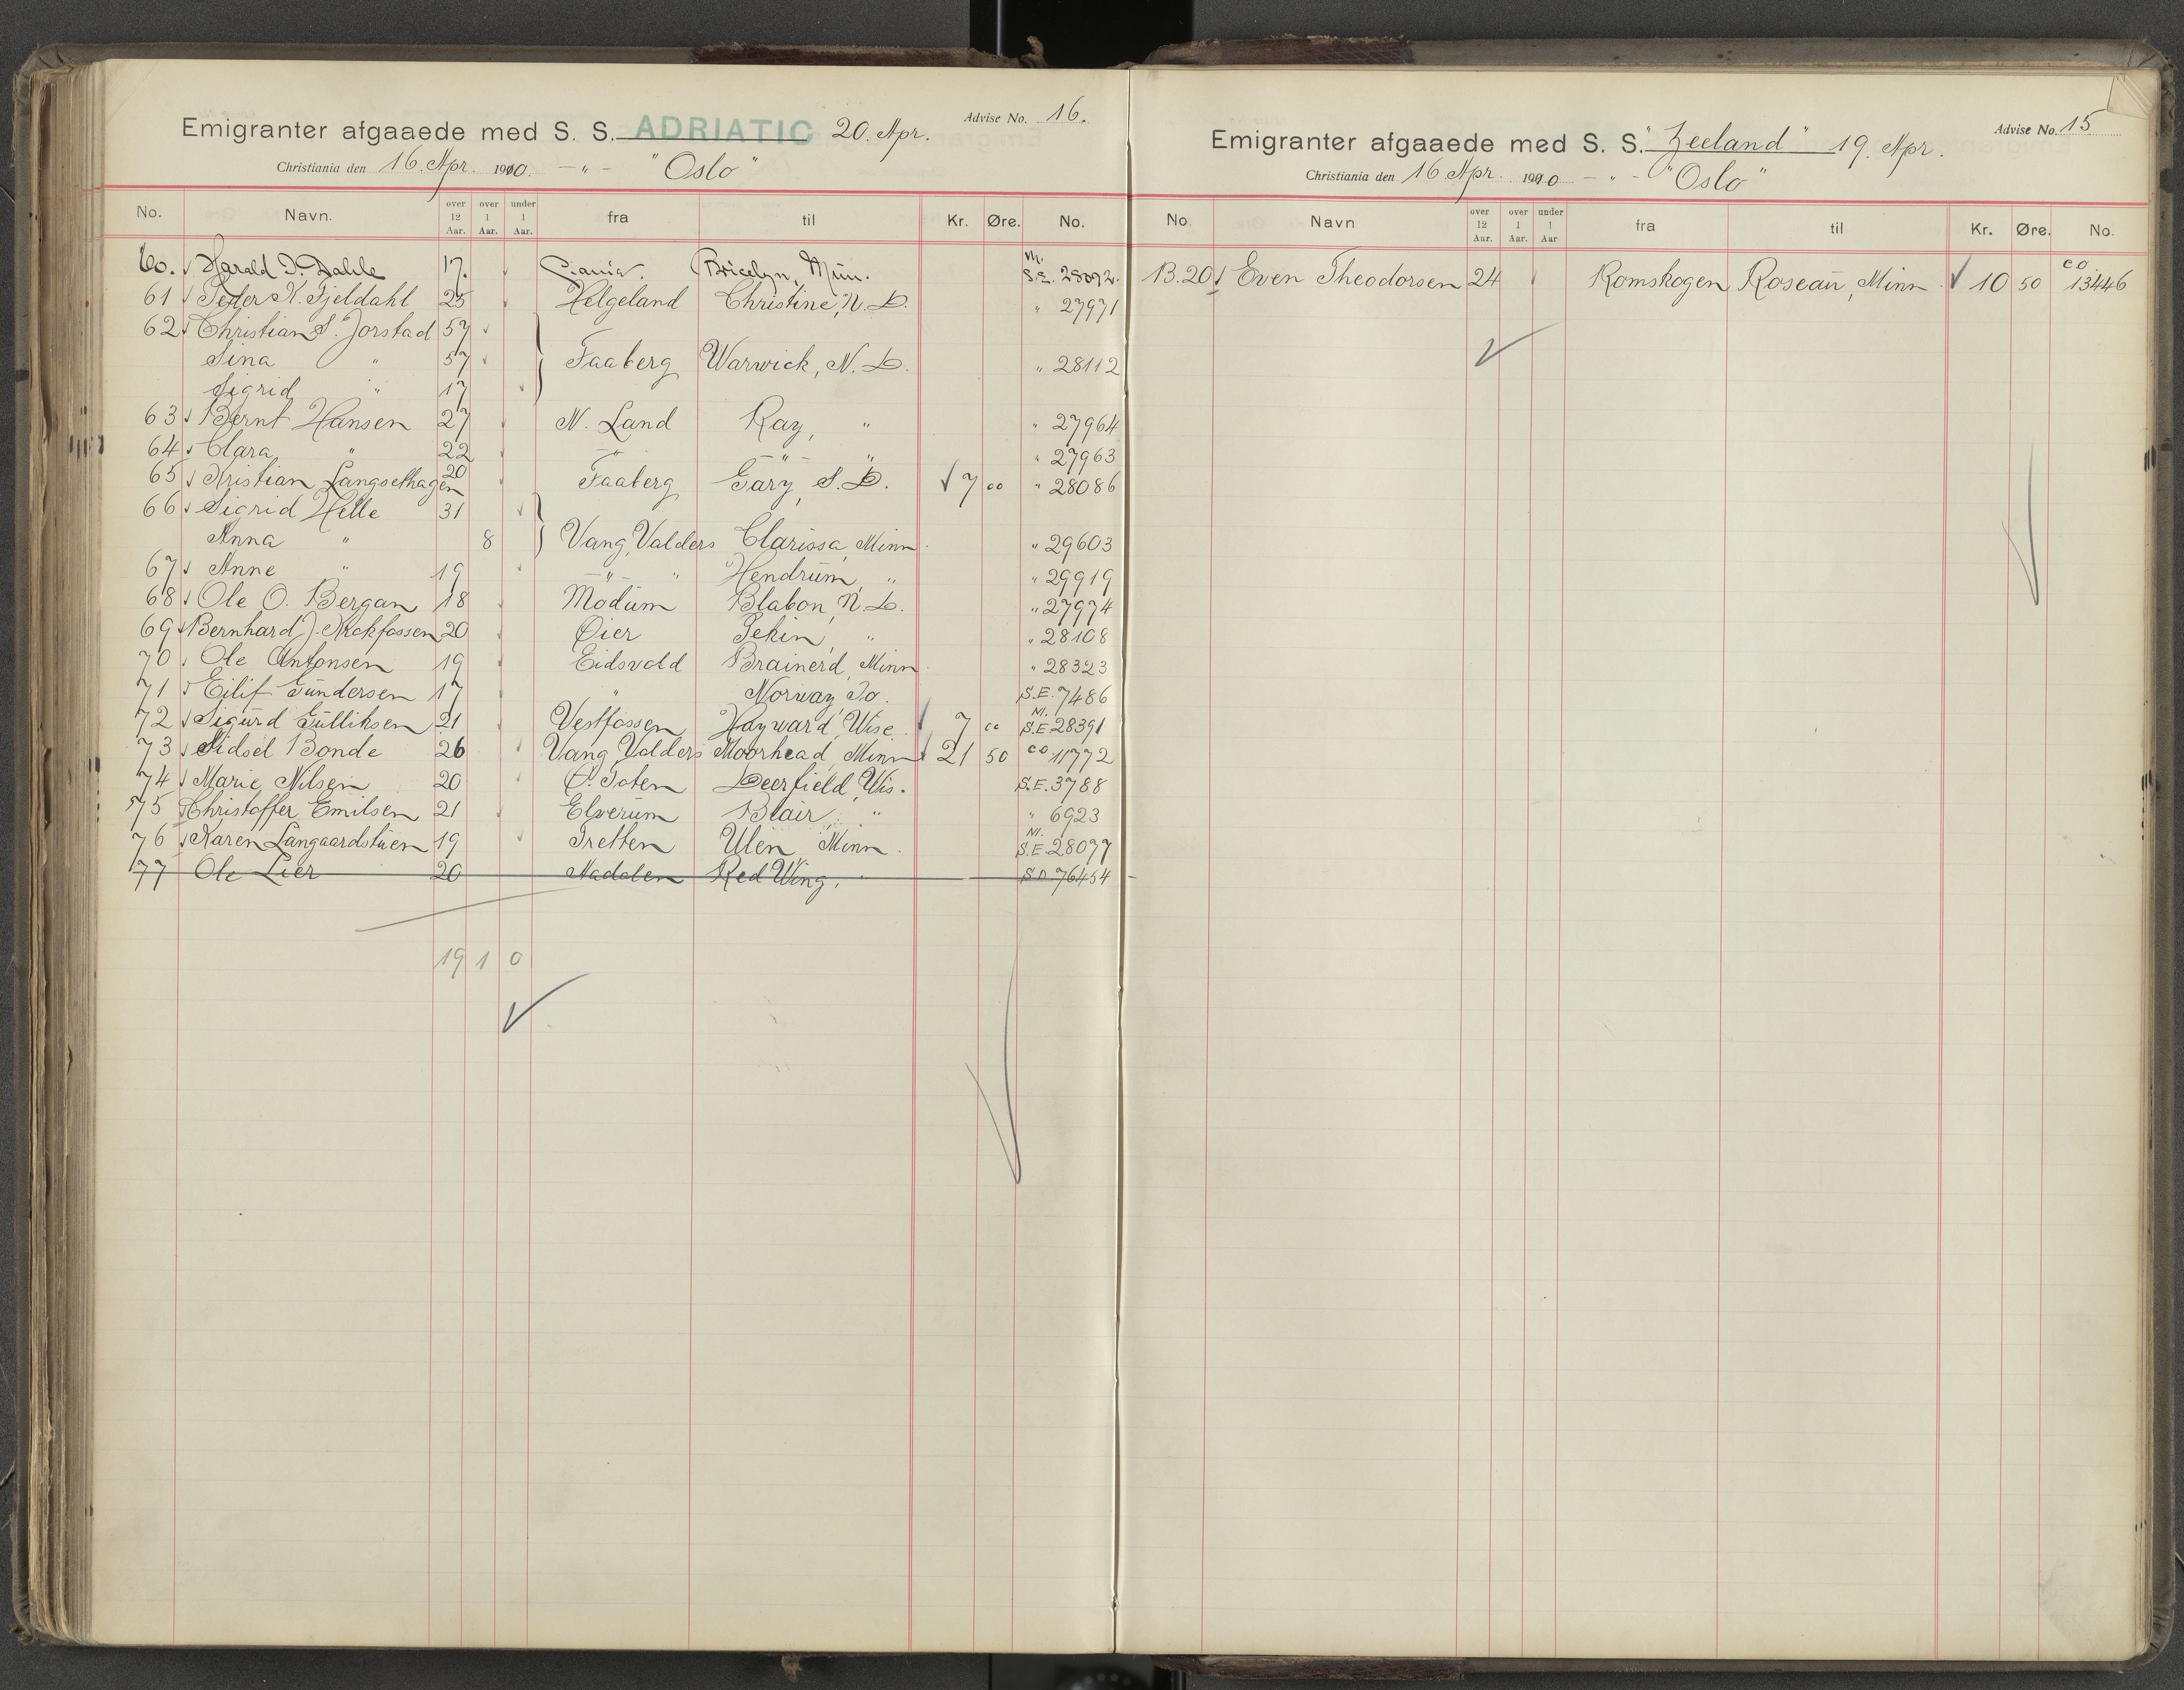 Emigranter afgaaede med S. S. ADRIATIC 20. Apr. Advise No. 16.
Christiania den 16. Apr. 1910. – " – "Oslo"
No. Navn. over 12 Aar. over 1 Aar. under 1 Aar. fra til Kr. Øre. No.
60. Harald I. Dahle 17. Crania. Bricelyn, Minn. N. S.E. 28092.
61 Peder K. Fjeldahl 25 Helgeland Christine, N. D. " 27971
62 Christian S. Jorstad 57
Sina " 57 } Faaberg Warwick, N. D. " 28112
Sigrid " 17
63 Bernt Hansen 27 N. Land Ray, " " 27964
64 Clara " 22 – " – " " 27963
65 Kristian Langsethagen 20 Faaberg Gary, S. D. 7 00 " 28086
66 Sigrid Helle 31
Anna " 8 } Vang, Valders Clarissa, Minn. " 29603
67 Anne " 19 – " – " Hendrum, " " 29919
68 Ole O. Bergan 18 Modum Blabon, N. D. " 27974
69 Bernhard J. Kickfossen 20 Øier Pekin, " " 28108
70 Ole Antonsen 19 Eidsvold Brainerd, Minn. " 28323
71 Eilif Gundersen 17 " Norway, Io. S.E. 7486
72 Sigurd Gulliksen 21 Vestfossen Hayward, Wisc. 7 00 N. S.E 28391
73 Sidsel Bonde 26 Vang Valders Moorhead, Minn 21 50 CO. 11772
74 Marie Nilsen 20 Ø. Toten Deerfield, Wis. S.E. 3788
75 Christoffer Emilsen 21 Elverum Blair, " " 6923
76 Karen Langaardstuen 19 Tretten Ulen Minn. N. S.E 28077
77 Ole Lier 20 Aadalen Red Wing, " S.D. 76454
19 1 0
Emigranter afgaaede med S. S. "Zeeland" 19. Apr. Advise No. 15
Christiania den 16 Apr. 1910 – " – "Oslo"
No. Navn over 12 Aar. over 1 Aar. under 1 Aar fra til Kr. Øre. No.
13.20 Even Theodorsen 24 Romskogen Roseau, Minn 10 50 CO 13446